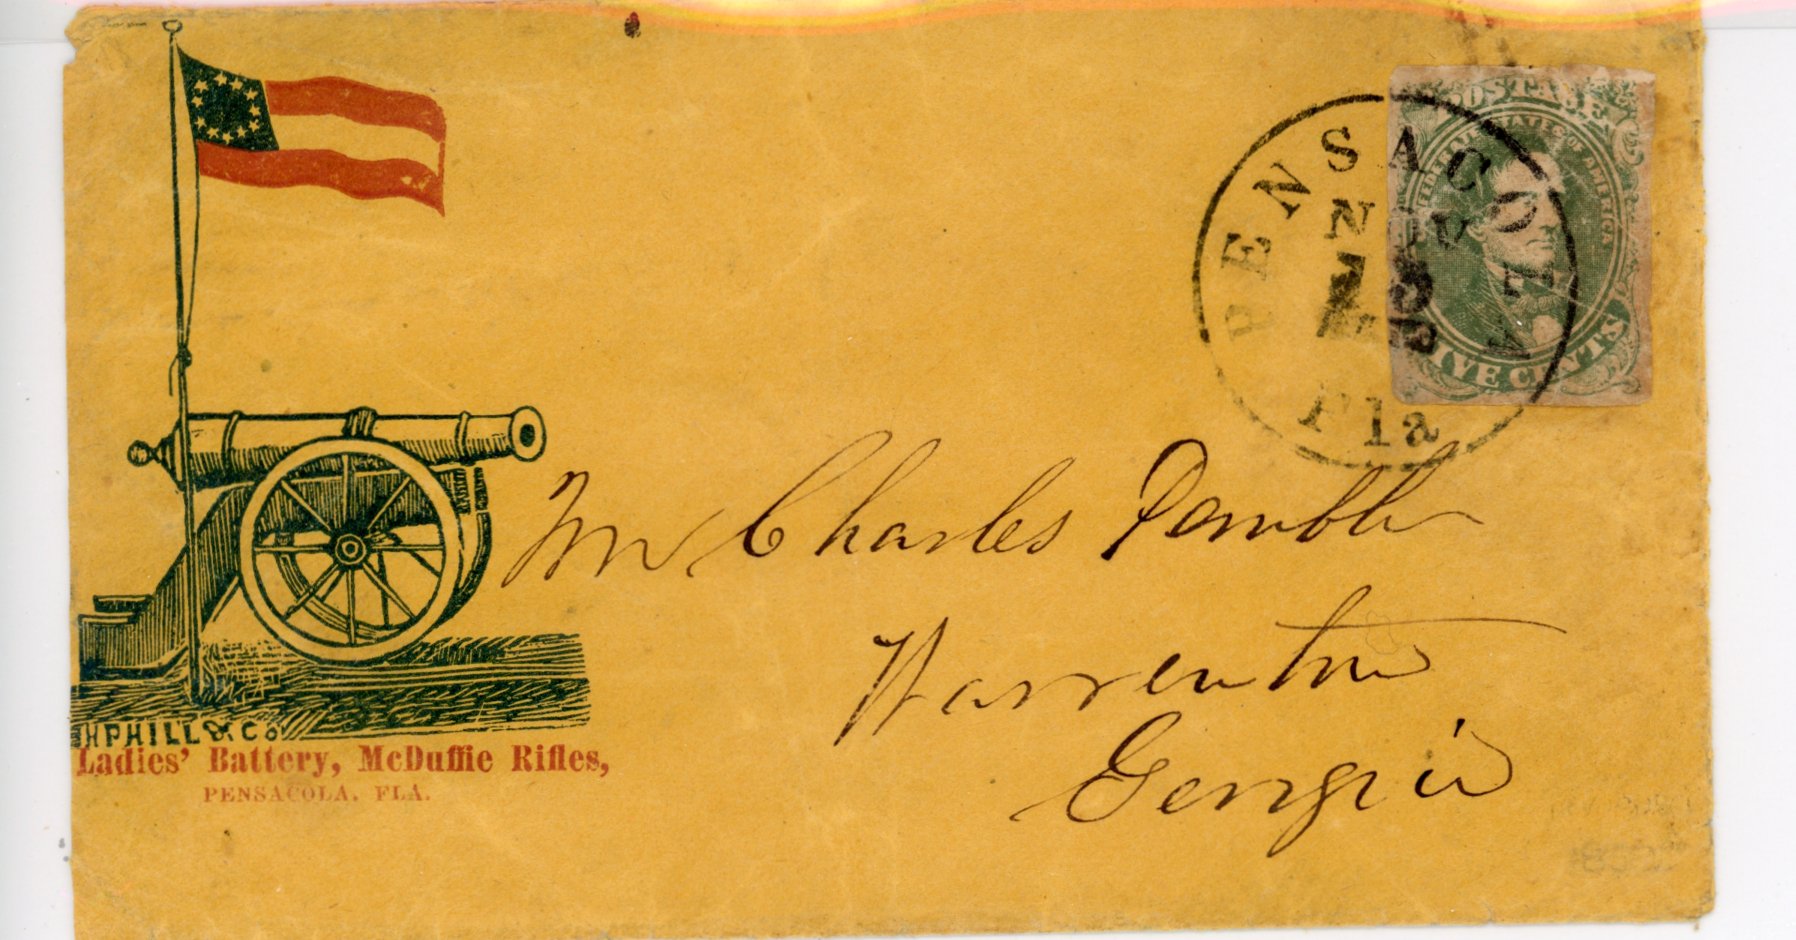 POSTAGE
CONFEDERATE STATES OF AMERICA
FIVE CENTS
PENSACOLA
NOV
Fla
Mr Charles Pembler
Warrenton
Georgia
HPHILL & Co
Ladies' Battery, McDuffie Rifles,
PENSACOLA, FLA.